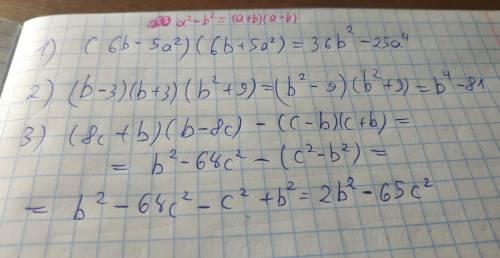 a²-b² = (a+b)(a-b)
1) (6b-5a²)(6b+5a²) = 36b²-25a⁴
2) (b-3)(b+3)(b²+9)=(b²-9)(b²+9)=b⁴-81
3) (8c+b)(b-8c) - (c-b)(c+b)=
= b²-64c²-(c²-b²)=
= b²-64c²-c²+b²=2b²-65c²